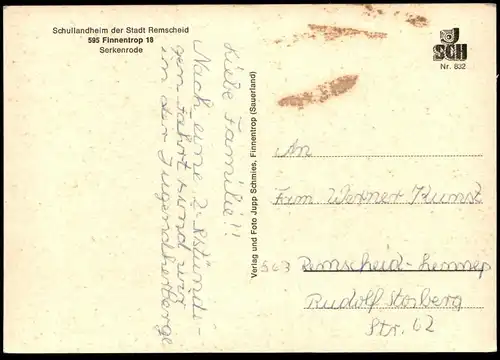 Schullandheim der Stadt Remscheid
595 Finnentrop 18
Serkenrode
SCH
Nr. 832
Liebe Familie!!
Nach eine 2-stündi-
gen Fahrt sind wir
in der Jugendherberge
Verlag und Foto Jupp Schmies, Finnentrop (Sauerland)
An
Fam Werner Kunst
563 Remscheid-Lennep
Rudolf Stosberg
Str. 62